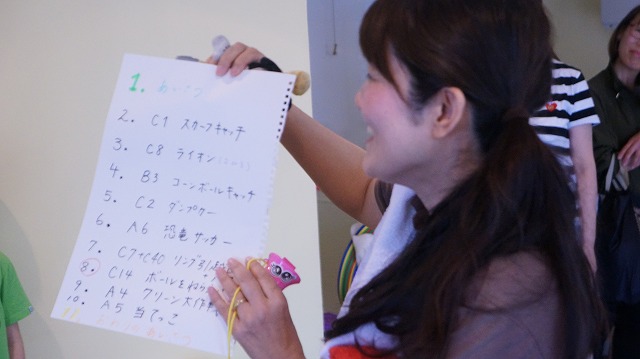 1. あいさつ
2. C1 スカーフキャッチ
3. C8 ライオン
4. B3 コーンボールキャッチ
5. C2 ダンプカー
6. A6 恐竜サッカー
7. C7→C40 リング引
8. C14 ボールをねら
9. A4 グリーン大作
10. A5 当てっこ
11.